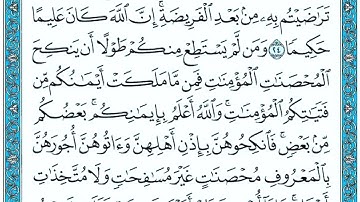 تَرَٰضَيْتُم بِهِۦ مِنۢ بَعْدِ ٱلْفَرِيضَةِ ۚ إِنَّ ٱللَّهَ كَانَ عَلِيمًا
حَكِيمًا ٢٤ وَمَن لَّمْ يَسْتَطِعْ مِنكُمْ طَوْلًا أَن يَنكِحَ
ٱلْمُحْصَنَٰتِ ٱلْمُؤْمِنَٰتِ فَمِن مَّا مَلَكَتْ أَيْمَٰنُكُم مِّن
فَتَيَٰتِكُمُ ٱلْمُؤْمِنَٰتِ ۚ وَٱللَّهُ أَعْلَمُ بِإِيمَٰنِكُم ۚ بَعْضُكُم
مِّنۢ بَعْضٍ ۚ فَٱنكِحُوهُنَّ بِإِذْنِ أَهْلِهِنَّ وَءَاتُوهُنَّ أُجُورَهُنَّ
بِٱلْمَعْرُوفِ مُحْصَنَٰتٍ غَيْرَ مُسَٰفِحَٰتٍ وَلَا مُتَّخِذَٰتِ